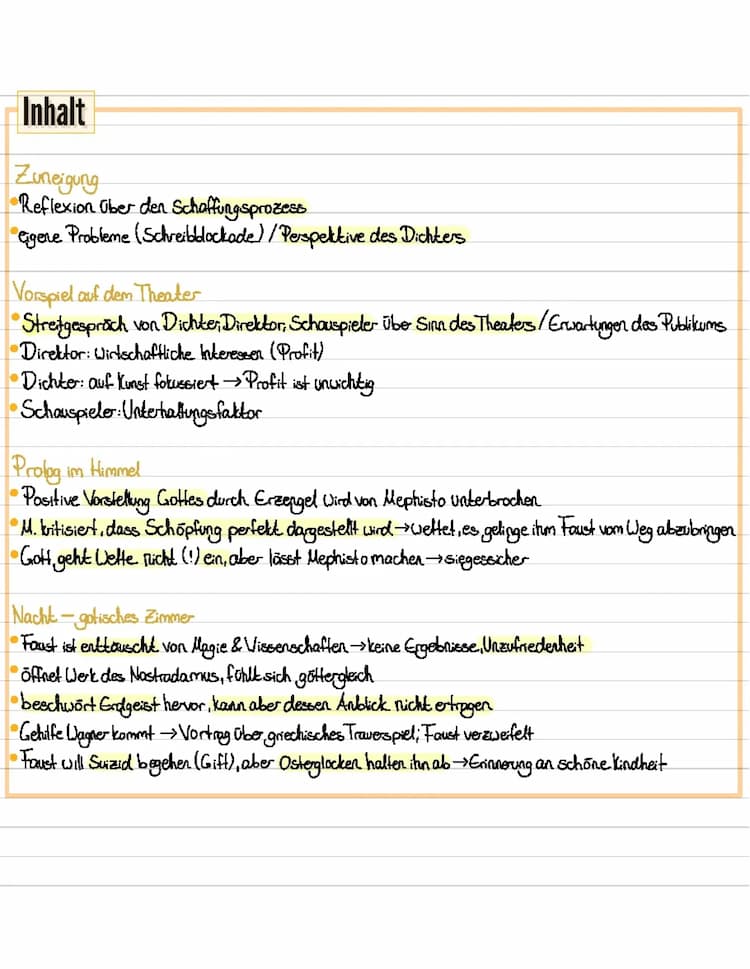 Inhalt
Zuneigung
• Reflexion über den Schaffungsprozess
• eigene Probleme (Schreibblockade) / Perspektive des Dichters
Vorspiel auf dem Theater
• Streitgespräch von Dichter, Direktor, Schauspieler über Sinn des Theaters / Erwartungen des Publikums
• Direktor: wirtschaftliche Interessen (Profit)
• Dichter: auf Kunst fokussiert → Profit ist unwichtig
• Schauspieler: Unterhaltungsfaktor
Prolog im Himmel
• Positive Vorstellung Gottes durch Erzengel wird von Mephisto unterbrochen
• M. kritisiert, dass Schöpfung perfekt dargestellt wird → wettet, es gelinge ihm Faust vom Weg abzubringen
• Gott geht Wette nicht (!) ein, aber lässt Mephisto machen → siegessicher
Nacht – gotisches Zimmer
• Faust ist enttäuscht von Magie & Wissenschaften → keine Ergebnisse, Unzufriedenheit
• öffnet Werk des Nostradamus, fühlt sich göttergleich
• beschwört Erdgeist hervor, kann aber dessen Anblick nicht ertragen
• Gehilfe Wagner kommt → Vortrag über griechisches Trauerspiel; Faust verzweifelt
• Faust will Suizid begehen (Gift), aber Osterglocken halten ihn ab → Erinnerung an schöne Kindheit